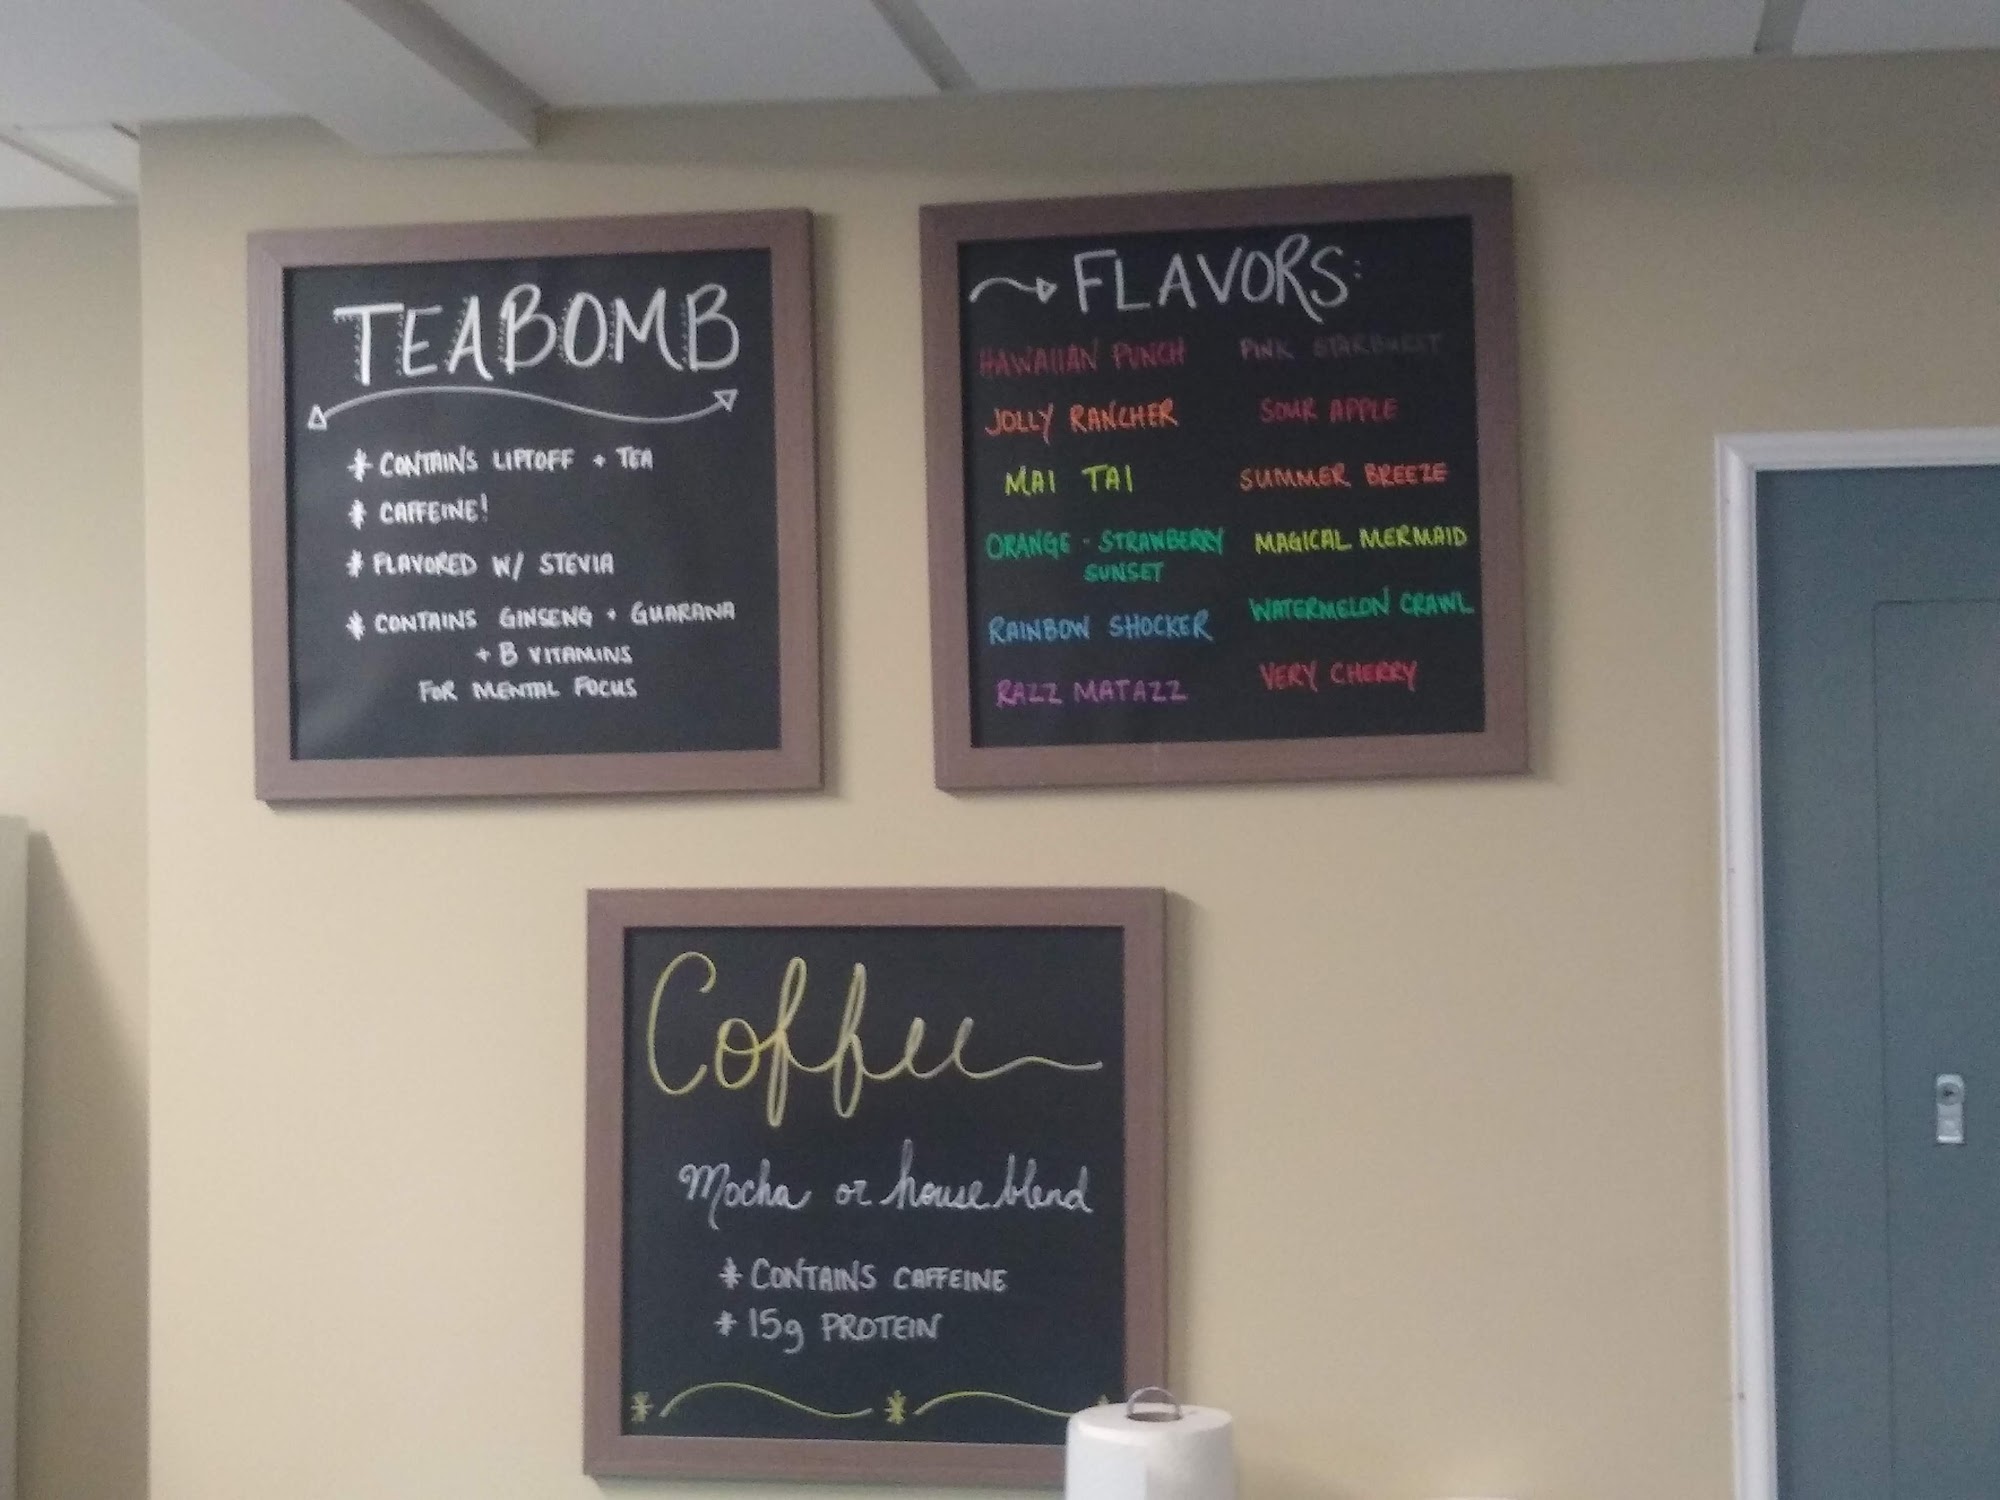 TEABOMB
* CONTAINS LIPTOFF + TEA
* CAFFEINE!
* FLAVORED W/ STEVIA
* CONTAINS GINSENG + GUARANA
+ B VITAMINS
FOR MENTAL FOCUS
FLAVORS:
HAWAIIAN PUNCH
JOLLY RANCHER
MAI TAI
ORANGE - STRAWBERRY
SUNSET
RAINBOW SHOCKER
RAZZ MATAZZ
PINK STARBURST
SOUR APPLE
SUMMER BREEZE
MAGICAL MERMAID
WATERMELON CRAWL
VERY CHERRY
Coffee
Mocha or house blend
* CONTAINS CAFFEINE
* 15g PROTEIN